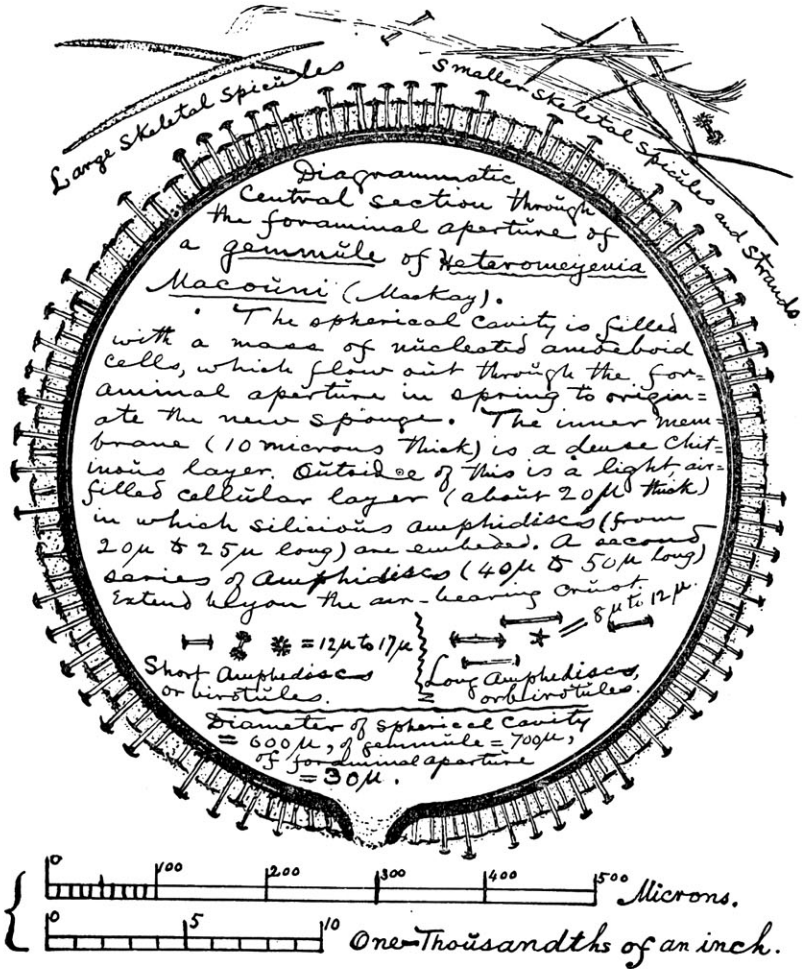 Large Skeletal Spicules
Smaller Skeletal Spicules and strands.
Diagrammatic
Central section through
the foraminal aperture of
a gemmule of Heteromeyenia
Macouni (MacKay).
The spherical cavity is filled
with a mass of nucleated amoeboid
cells, which flow out through the for=
aminal aperture in spring to origin=
ate the new sponge. The inner mem=
brane (10 microns thick) is a dense chit=
inous layer. Outside of this is a light air=
filled cellular layer (about 20µ thick)
in which silicious amphidiscs (from
20µ to 25µ long) are embeded. A second
series of Amphidiscs (40µ to 50µ long)
Extend beyon the air-bearing crust.
= 12µ to 17µ
= 8µ to 12µ.
Short Amphediscs
or birotules.
Long Amphediscs,
or birotules.
Diameter of Spherical Cavity
= 600µ, of gemmule = 700µ,
of foraminal aperture
= 30µ.
0 100 200 300 400 500 Microns.
0 5 10 One=Thousandths of an inch.